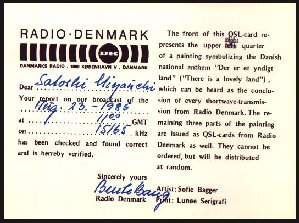 RADIO·DENMARK
DANMARKS RADIO · 1999 KØBENHAVN V · DANMARK
Dear Satoshi Miyauchi
Your report on our broadcast of the
Aug. 23. - 1986
at 1100 GMT
on 15165 kHz
has been checked and found correct
and is hereby verified.
Sincerely yours
Radio Denmark
The front of this QSL-card re-
presents the upper left quarter
of a painting symbolizing the Danish
national anthem "Der er et yndigt
land" ("There is a lovely land"),
which can be heard as the conclu-
sion of every shortwave-transmis-
sion from Radio Denmark. The re-
maining three parts of the painting
are issued as QSL-cards from Radio
Denmark as well. They cannot be
ordered, but will be distributed
at random.
Artist: Sofie Bagger
Print: Lunøe Serigrafi